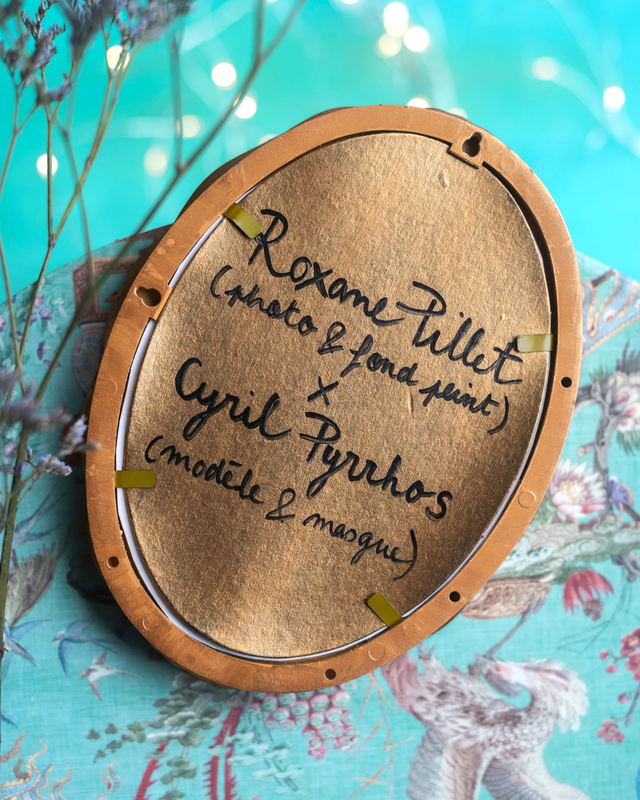 Roxane Pillet
(photo & fond peint)
x
Cyril Pyrrhos
(modèle & masque)